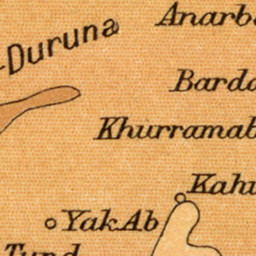 Anarb
-Duruna
Barda
Khurramab
Kahu
Yak Ab
Tund